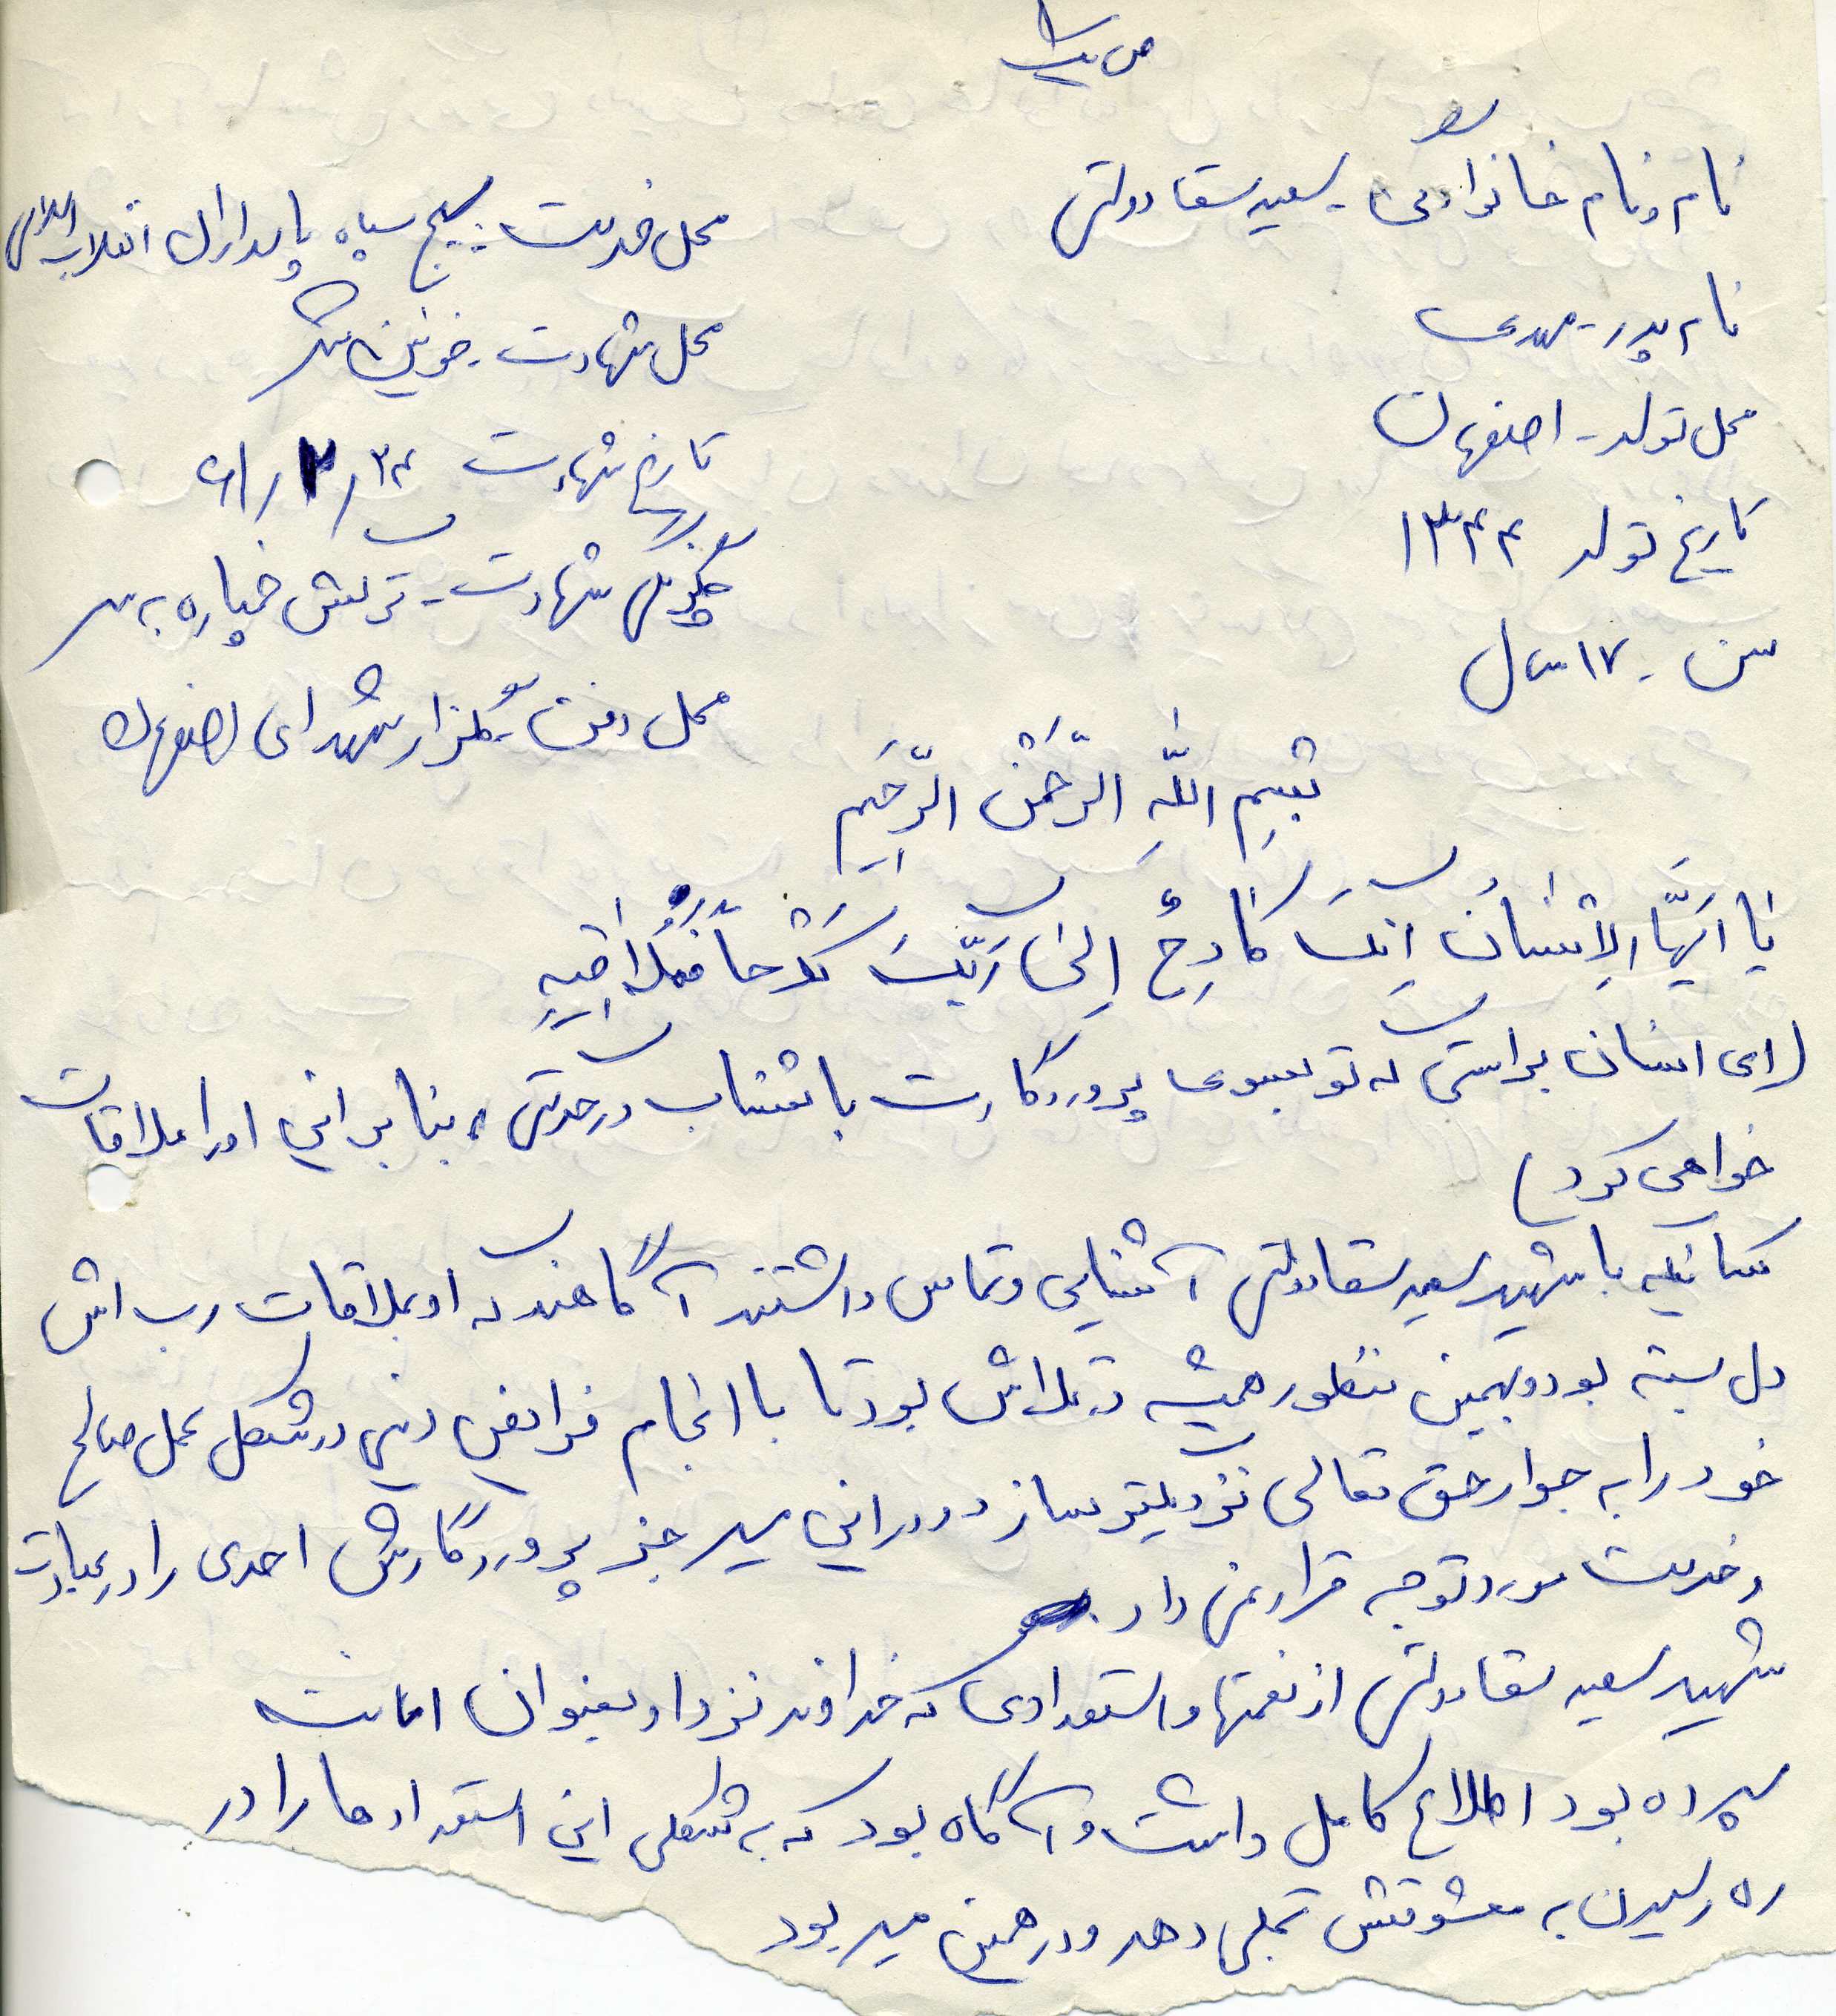 نام و نام خانوادگی - سعید سقا دولتی
محل خدمت - بسیج سپاه پاسداران انقلاب اسلامی
نام پدر - مهدی
محل شهادت - خونین شهر
محل تولد - اصفهان
تاریخ شهادت ۶۱/۲/۲۴
تاریخ تولد ۱۳۴۴
چگونگی شهادت - ترکش خمپاره به سر
سن - ۱۷ سال
محل دفن - گلزار شهدای اصفهان
بِسْمِ اللّهِ الرَّحْمنِ الرَّحیمِ
یا اَیُّهَا الاِنْسانُ اِنَّکَ کادِحٌ اِلی رَبِّکَ کَدْحاً فَمُلاقیهِ
(ای انسان براستی که تو بسوی پروردگارت با شتاب در حرکتی، بنابراین او را ملاقات
خواهی کرد)
کسانیکه با شهید سعید سقا دولتی آشنایی و تماس داشتند آگاهند که او بملاقات رب اش
دل بسته بود و بهمین منظور همیشه در تلاش بود تا با انجام فرائض دینی در شکل عمل صالح
خود را به جوار حق تعالی نزدیکتر سازد و در این مسیر جز پروردگارش احدی را در عبادت
و خدمت مورد توجه قرار نمی داد.
شهید سعید سقا دولتی از نعمتها و استعدادی که خداوند نزد او بعنوان امانت
سپرده بود اطلاع کامل داشت و آگاه بود که به شکلی این استعدادها را در
ره رسیدن به معشوقش تجلی دهد و در همین مسیر بود